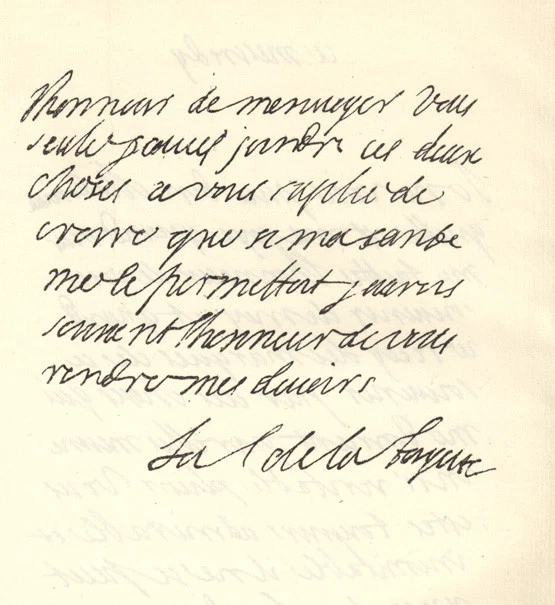 lhonneur de menuoyer vous
seule pouues joindre ces deux
choses je vous suplie de
croire que si ma sante
me le permettoit jaurois
souuent lhonneur de vous
rendre mes deuoirs
La C de la fayette